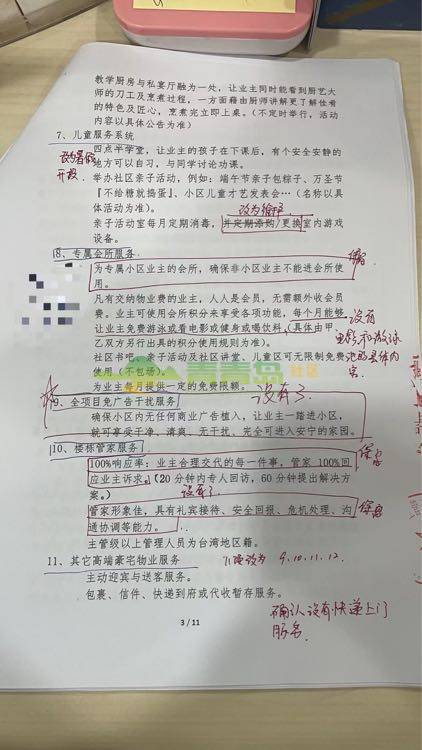 教学厨房与私宴厅融为一处，让业主同时能看到厨艺大
师的刀工及烹煮过程，一方面藉由厨师讲解更了解佳肴
的特色及匠心，烹煮完立即上桌。（不定时举行，活动
内容以具体公告为准）
7、儿童服务系统
四点半学堂，让业主的孩子在下课后，有个安全安静的
地方可以自习，与同学讨论功课。
改为暑假
开设
举办社区亲子活动，例如：端午节亲子包粽子、万圣节
『不给糖就捣蛋』、小区儿童才艺发表会…（名称以具
体活动为准）。
改为
亲子活动室每月定期消毒，并定期添购/更换室内游戏
设备。
8、专属会所服务
为专属小区业主的会所，确保非小区业主不能进会所使
用。
凡有交纳物业费的业主，人人是会员，无需额外收会员
费。业主可使用会所积分来享受各项功能，每个月能够
让业主免费游泳或看电影或健身或喝饮料，（具体由甲、
乙双方另行出具的积分使用规则为准）。
没有
电影和游泳
池的具体内
容
社区书吧、亲子活动及社区讲堂、儿童区可无限制免费
使用（不包场）。
为业主每月提供一定的免费限额。
青青岛社区
没有了
9、全项目免广告干扰服务
确保小区内无任何商业广告植入，让业主一踏进小区，
就可享受干净、清爽、无干扰、完全可进入安宁的家园。
10、楼栋管家服务
100%响应率：业主合理交代的每一件事，管家 100%回
应业主诉求。（20 分钟内专人回访，60 分钟提出解决方
案。）
没有了
管家形象佳，具有礼宾接待、安全回报、危机处理、沟
通协调等能力。
主管级以上管理人员为台湾地区籍。
11、其它高端豪宅物业服务
改为 9.10.11.12.
主动迎宾与送客服务。
包裹、信件、快递到府或代收暂存服务。
确认没有快递上门
服务
3 / 11